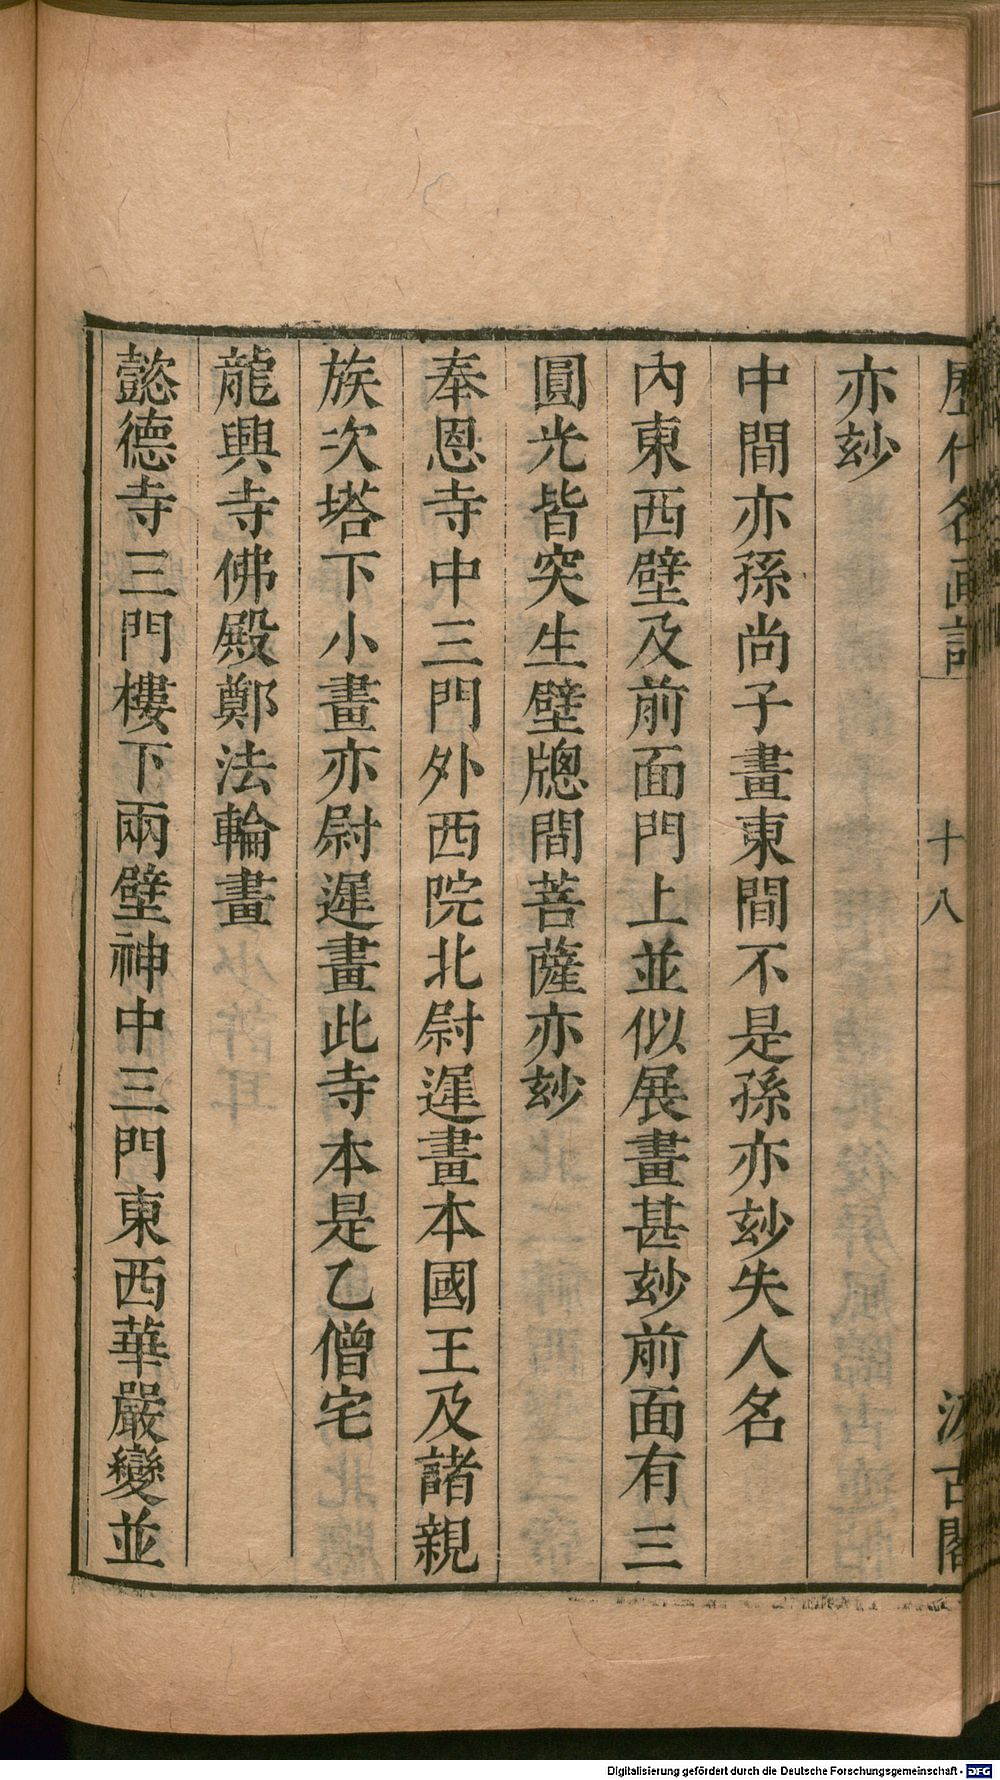 歷代名畫記
十八
汲古閣
亦玅
中間亦孫尚子畫東間不是孫亦玅失人名
內東西壁及前面門上並似展畫甚玅前面有三
圓光皆突生壁牎間菩薩亦玅
奉恩寺中三門外西院北尉遲畫本國王及諸親
族次塔下小畫亦尉遲畫此寺本是乙僧宅
龍興寺佛殿鄭法輪畫
懿德寺三門樓下兩壁神中三門東西華嚴變並
Digitalisierung gefördert durch die Deutsche Forschungsgemeinschaft - DFG